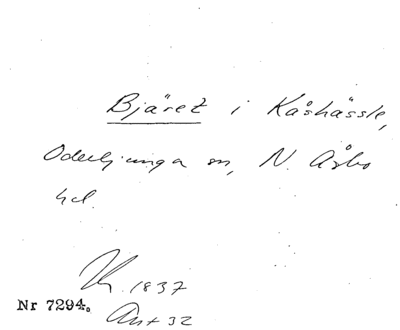 Bjäret i Kåshässle,
Oderljunga sn, N. Åsbo
hd.
1837
Nr 7294. Ant 32